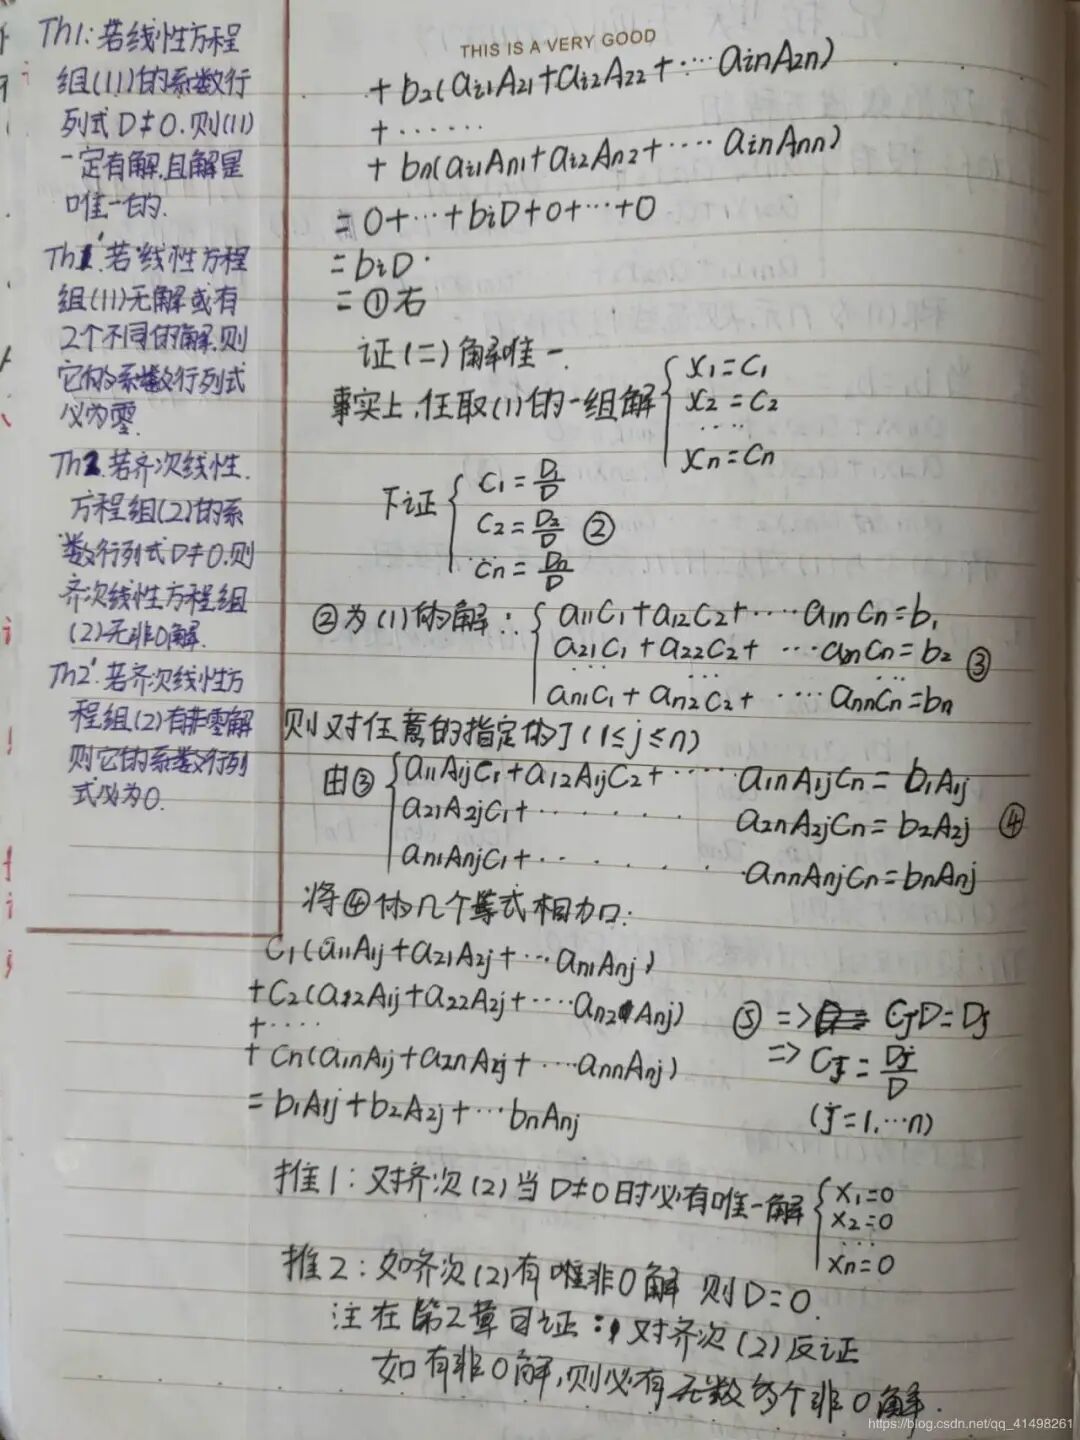 Th1:若线性方程
组(11)的系数行
列式D≠0.则(11)
一定有解,且解是
唯一的.
Th1'.若线性方程
组(11)无解或有
2个不同的解.则
它的系数行列式
必为零.
Th2.若齐次线性.
方程组(2)的系
数行列式D≠0.则
齐次线性方程组
(2)无非0解.
Th2'.若齐次线性方
程组(2)有非零解
则它的系数行列
式必为0.
THIS IS A VERY GOOD
+b₂(aᵢ₁A₂₁+aᵢ₂A₂₂+····aᵢnA₂n)
+······
+bn(aᵢ₁An₁+aᵢ₂An₂+····aᵢnAnn)
=0+···+bᵢD+0+···+0
=bᵢD.
=①右
证(二)解唯一.
事实上,任取(1)的一组解{x₁=C₁
x₂=C₂
····
xn=Cn
下证{C₁=D₁/D
C₂=D₂/D ②
Cn=Dn/D
②为(1)的解:{a₁₁C₁+a₁₂C₂+····a₁nCn=b₁
a₂₁C₁+a₂₂C₂+ ···a₂nCn=b₂ ③
an₁C₁+an₂C₂+ ····annCn=bn
则对任意的指定的j(1≤j≤n)
由③{a₁₁A₁jC₁+a₁₂A₁jC₂+····· a₁nA₁jCn=b₁A₁j
a₂₁A₂jC₁+······ a₂nA₂jCn=b₂A₂j ④
an₁AnjC₁+······ annAnjCn=bnAnj
将④的几个等式相加:
C₁(a₁₁A₁j+a₂₁A₂j+···an₁Anj)
+C₂(a₁₂A₁j+a₂₂A₂j+····an₂Anj)
+····
+Cn(a₁nA₁j+a₂nA₂j+···annAnj)
=b₁A₁j+b₂A₂j+···bnAnj
⑤=> CjD=Dj
=> Cj=Dj/D
(j=1,···n)
推1:对齐次(2)当D≠0时必有唯一解{x₁=0
x₂=0
···
xn=0
推2:如齐次(2)有唯非0解 则D=0.
注在第2章可证:对齐次(2)反证
如有非0解,则必有无数多个非0解.
https://blog.csdn.net/qq_41498261